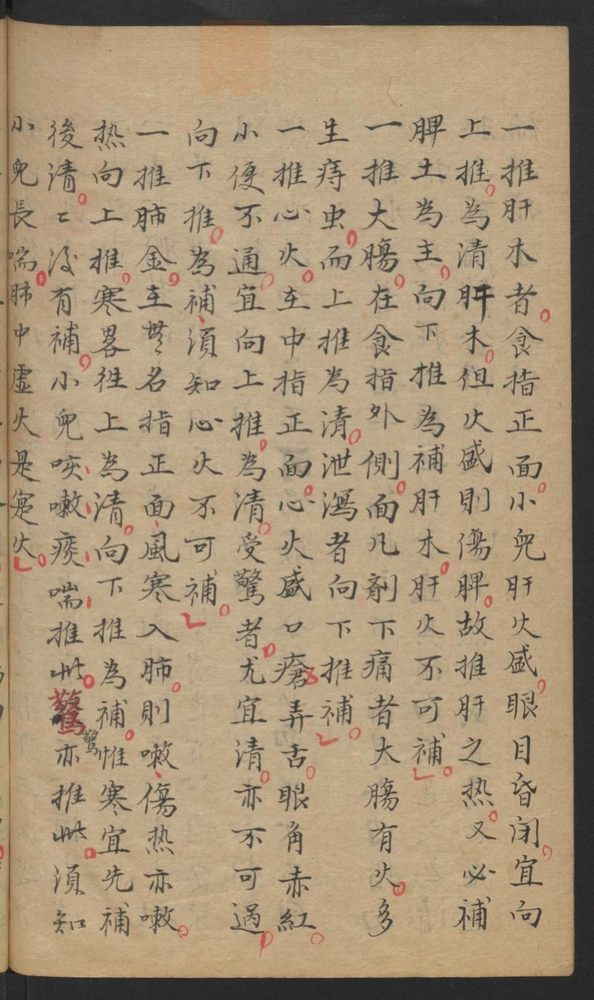 一推肝木者。食指正面。小兒肝火盛。眼目昏闭。宜向
上推。為清肝木。但火盛則傷脾。故推肝之热。又必補
脾土為主。向下推為補肝木。肝火不可補。
一推大腸。在食指外側。面凡剤下痛者大腸有火。多
生痔虫。而上推為清。泄瀉者向下推補。
一推心火。在中指正面。心火盛口瘡弄舌。眼角赤紅。
小便不通。宜向上推。為清。受驚者。尤宜清。亦不可過。
向下推。為補。須知心火不可補。
一推肺金。在無名指正面。風寒入肺。則嗽。傷热亦嗽。
热向上推。寒畧徃上為清。向下推為補。惟寒宜先補
後清。清後有補。小兒咳嗽痰喘推此。驚驚亦推此。須知
小兒長喘。肺中虛火是寔火。